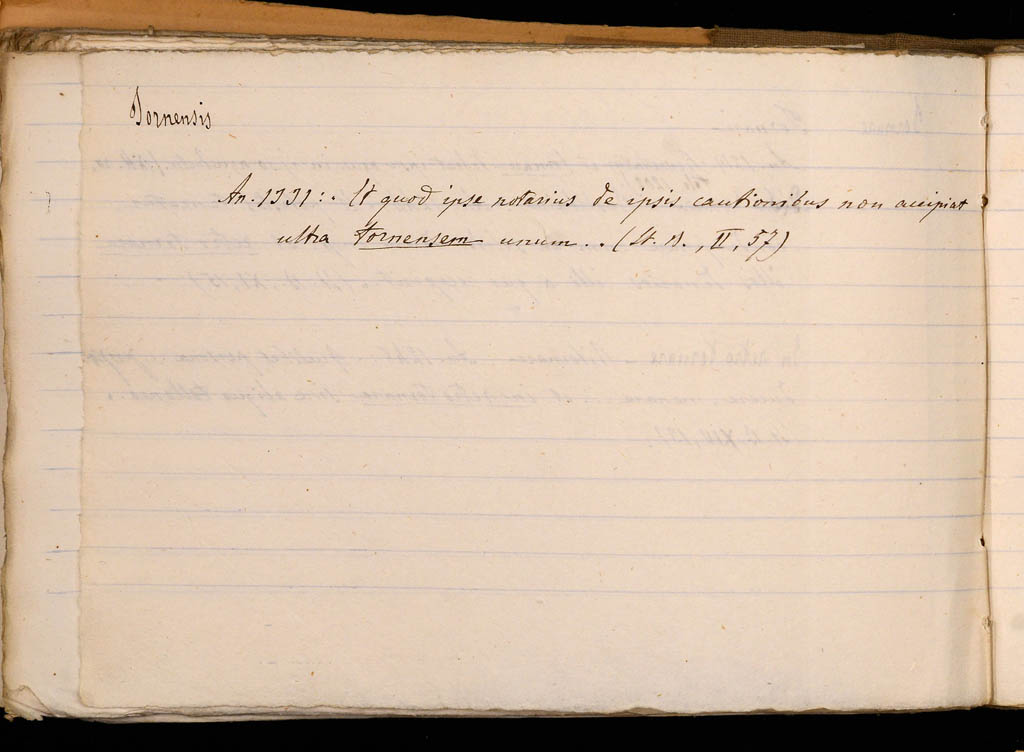 Tornensis
An. 1331: . Et quod ipse notarius de ipsis cautionibus non accipiat
ultra tornensem unum . . (St. B., II, 57)